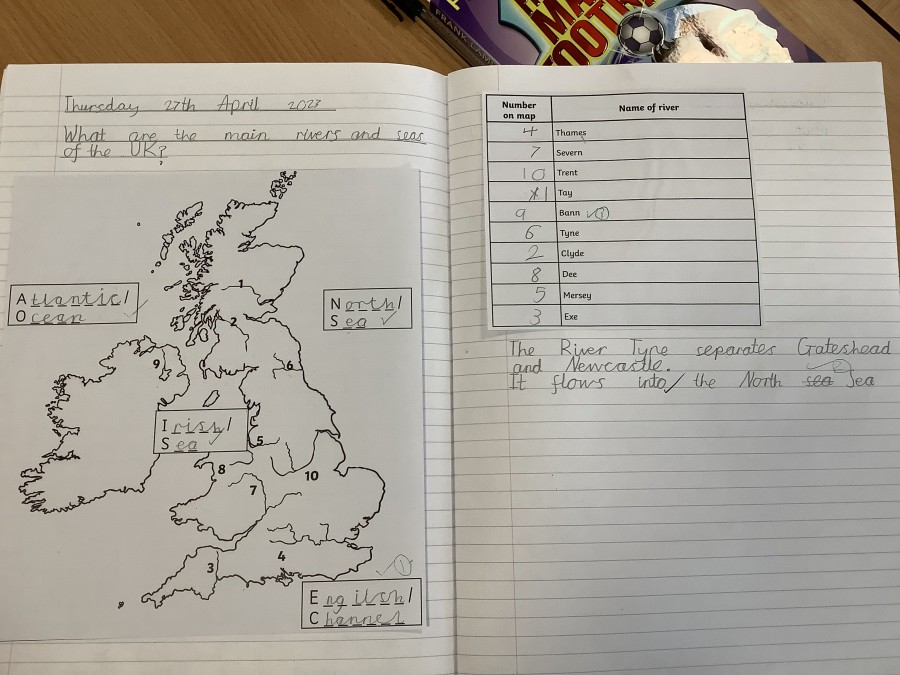 FRANK LAM
Thursday 27th April 2023
What are the main rivers and seas
of the UK?
Atlantic/
Ocean
North/
Sea
Irish/
Sea
English/
Channel
1
2
9
6
5
8
7
10
4
3
1
Number on map Name of river
4 Thames
7 Severn
10 Trent
1 Tay
9 Bann 1
6 Tyne
2 Clyde
8 Dee
5 Mersey
3 Exe
The River Tyne separates Gateshead
and Newcastle.
It flows into the North sea Sea